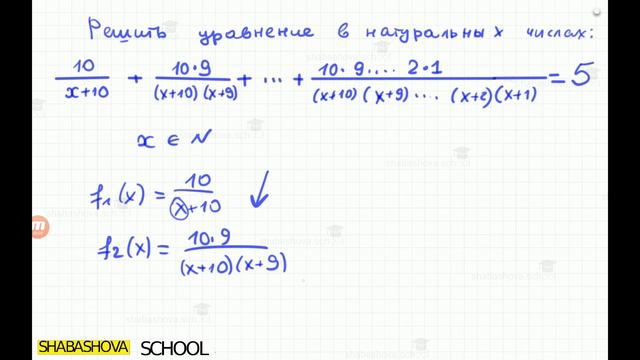 Решить уравнение в натуральных числах:
10/(x+10) + 10·9/((x+10)(x+9)) + ... + 10·9....2·1/((x+10)(x+9)....(x+2)(x+1)) = 5
x ∈ N
f₁(x) = 10/(x+10) ↓
f₂(x) = 10·9/((x+10)(x+9))
SHABASHOVA SCHOOL